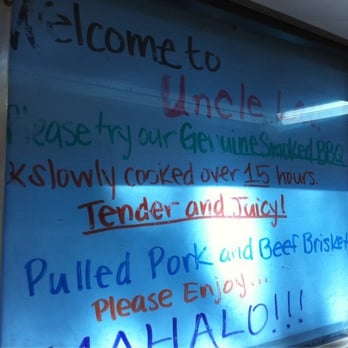 Welcome to
Uncle
Please try our Genuine Smoked BBQ
* slowly cooked over 15 hours.
Tender and Juicy!
Pulled Pork and Beef Brisket
Please Enjoy...
MAHALO!!!